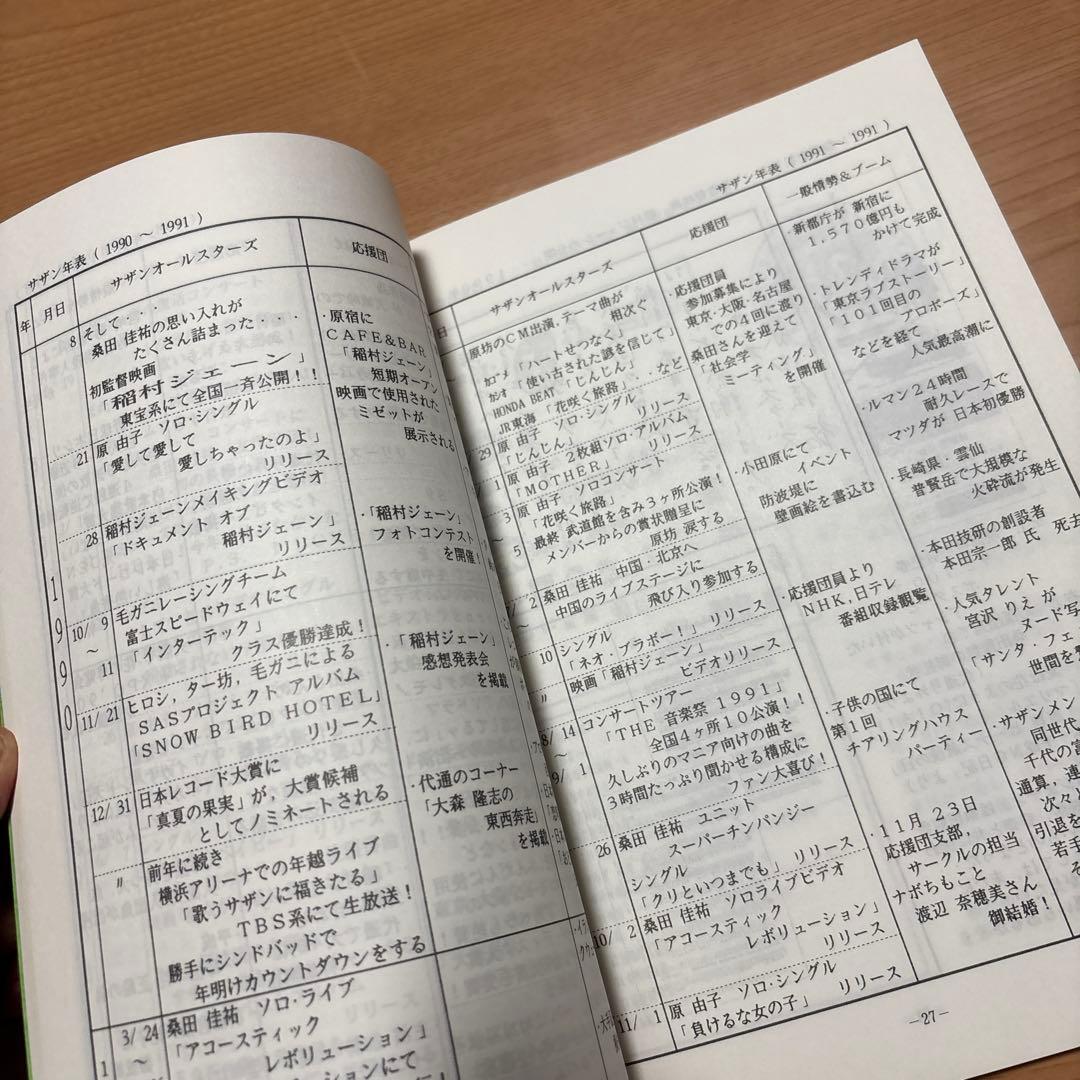 サザン年表 ( 1990 ～ 1991 )
年
月日
サザンオールスターズ
応援団
1
9
9
0
8
そして・・・
桑田 佳祐の思い入れが
たくさん詰まった・・・
初監督映画
「稲村ジェーン」
東宝系にて全国一斉公開！！
21
原 由子 ソロ・シングル
「愛して愛して
愛しちゃったのよ」
リリース
28
稲村ジェーンメイキングビデオ
「ドキュメント オブ
稲村ジェーン」
リリース
10/ 9
～
11
毛ガニレーシングチーム
富士スピードウェイにて
「インターテック」
クラス優勝達成！
11/ 21
ヒロシ，ター坊，毛ガニによる
ＳＡＳプロジェクト アルバム
「ＳＮＯＷ ＢＩＲＤ ＨＯＴＥＬ」
リリース
12/ 31
日本レコード大賞に
「真夏の果実」が，大賞候補
としてノミネートされる
〃
前年に続き
横浜アリーナでの年越ライブ
「歌うサザンに福きたる」
ＴＢＳ系にて生放送！
勝手にシンドバッドで
年明けカウントダウンをする
1
3/ 24
～
桑田 佳祐 ソロ・ライブ
「アコースティック
レボリューション」
・原宿に
ＣＡＦＥ&ＢＡＲ
「稲村ジェーン」
短期オープン
映画で使用された
ミゼットが
展示される
・「稲村ジェーン」
フォトコンテスト
を開催！
・「稲村ジェーン」
感想発表会
を掲載
・代通のコーナー
「大森 隆志の
東西奔走」
を掲載
サザン年表 ( 1991 ～ 1991 )
日
サザンオールスターズ
応援団
一般情勢＆ブーム
原坊のＣＭ出演，テーマ曲が
相次ぐ
カゴメ 「ハートせつなく」
カシオ 「使い古された諺を信じて」
HONDA BEAT 「じんじん」
JR東海 「花咲く旅路」 など
29
原 由子 ソロ・シングル
「じんじん」 リリース
1
原 由子 2枚組ソロ・アルバム
「ＭＯＴＨＥＲ」 リリース
3
～
5
原 由子 ソロコンサート
「花咲く旅路」
最終 武道館を含み３ヶ所公演！
メンバーからの賞状贈呈に
原坊 涙する
2
桑田 佳祐 中国・北京へ
中国のライブステージに
飛び入り参加する
10
シングル
「ネオ・ブラボー！」 リリース
〃
映画「稲村ジェーン」
ビデオリリース
8/ 14
～
9/ 1
コンサートツアー
「ＴＨＥ 音楽祭 １９９１」
全国４ヶ所１０公演！！
久しぶりのマニア向けの曲を
３時間たっぷり聞かせる構成に
ファン大喜び！
26
桑田 佳祐 ユニット
スーパーチンパンジー
シングル
「クリといつまでも」 リリース
10/ 2
桑田 佳祐 ソロライブビデオ
「アコースティック
レボリューション」
リリース
11/ 1
原 由子 ソロ・シングル
「負けるな女の子」 リリース
・応援団員
参加募集により
東京・大阪・名古屋
での４回に渡り
桑田さんを迎えて
「社会学
ミーティング」
を開催
・小田原にて
イベント
防波堤に
壁画絵を書込む
応援団員より
ＮＨＫ，日テレ
番組収録観覧
子供の国にて
第１回
チアリングハウス
パーティー
・１１月 ２３日
応援団支部，
サークルの担当
ナボちもこと
渡辺 奈穂美さん
御結婚！
・新都庁が 新宿に
１，５７０億円も
かけて完成
・トレンディドラマが
「東京ラブストーリー」
１０１回目の
プロポーズ」
などを経て
人気最高潮に
・ルマン２４時間
耐久レースで
マツダが 日本初優勝
・長崎県・雲仙
普賢岳で大規模な
火砕流が発生
・本田技研の創設者
本田宗一郎 氏 死去
・人気タレント
宮沢 りえ が
ヌード写
「サンタ・フェ
世間を
・サザンメン
同世代
千代の富
通算，連
次々と
引退を
若手
－27－